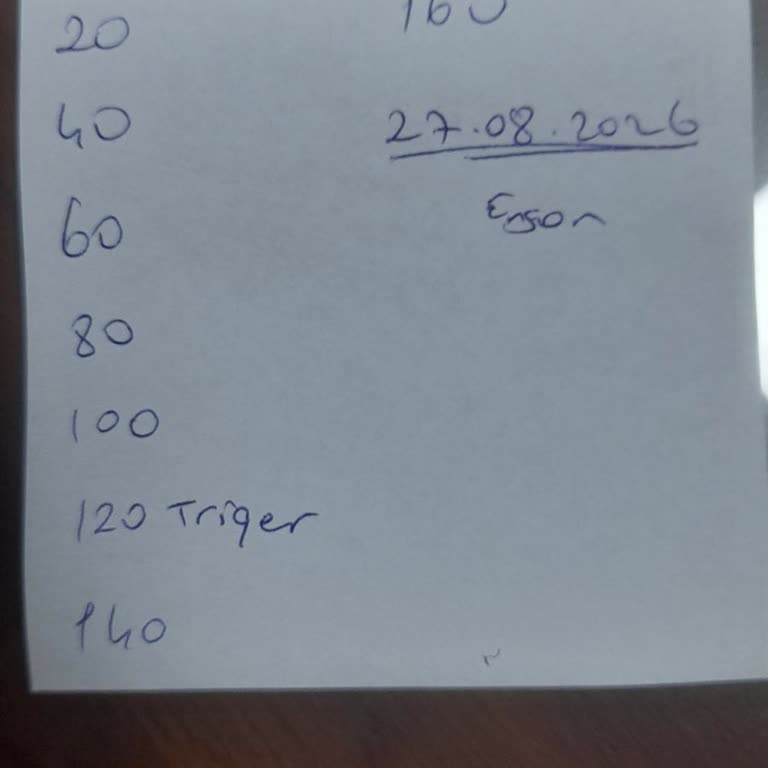 20
40
60
80
100
120 Triger
140
160
27.08.2026